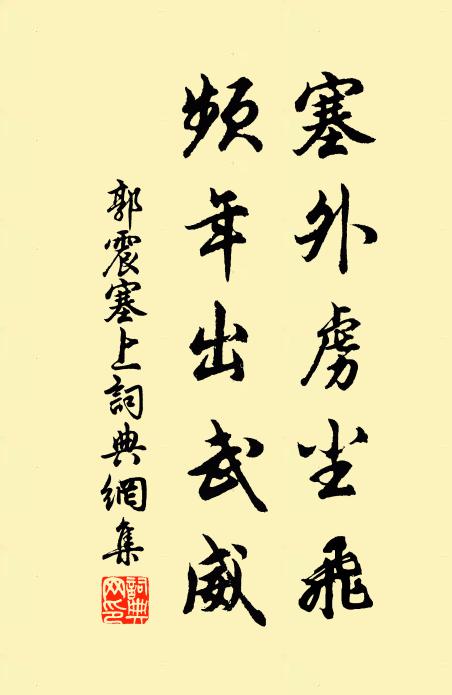 塞外虜塵飛
頻年出武威
郭震塞上詞典網集
詞典網印